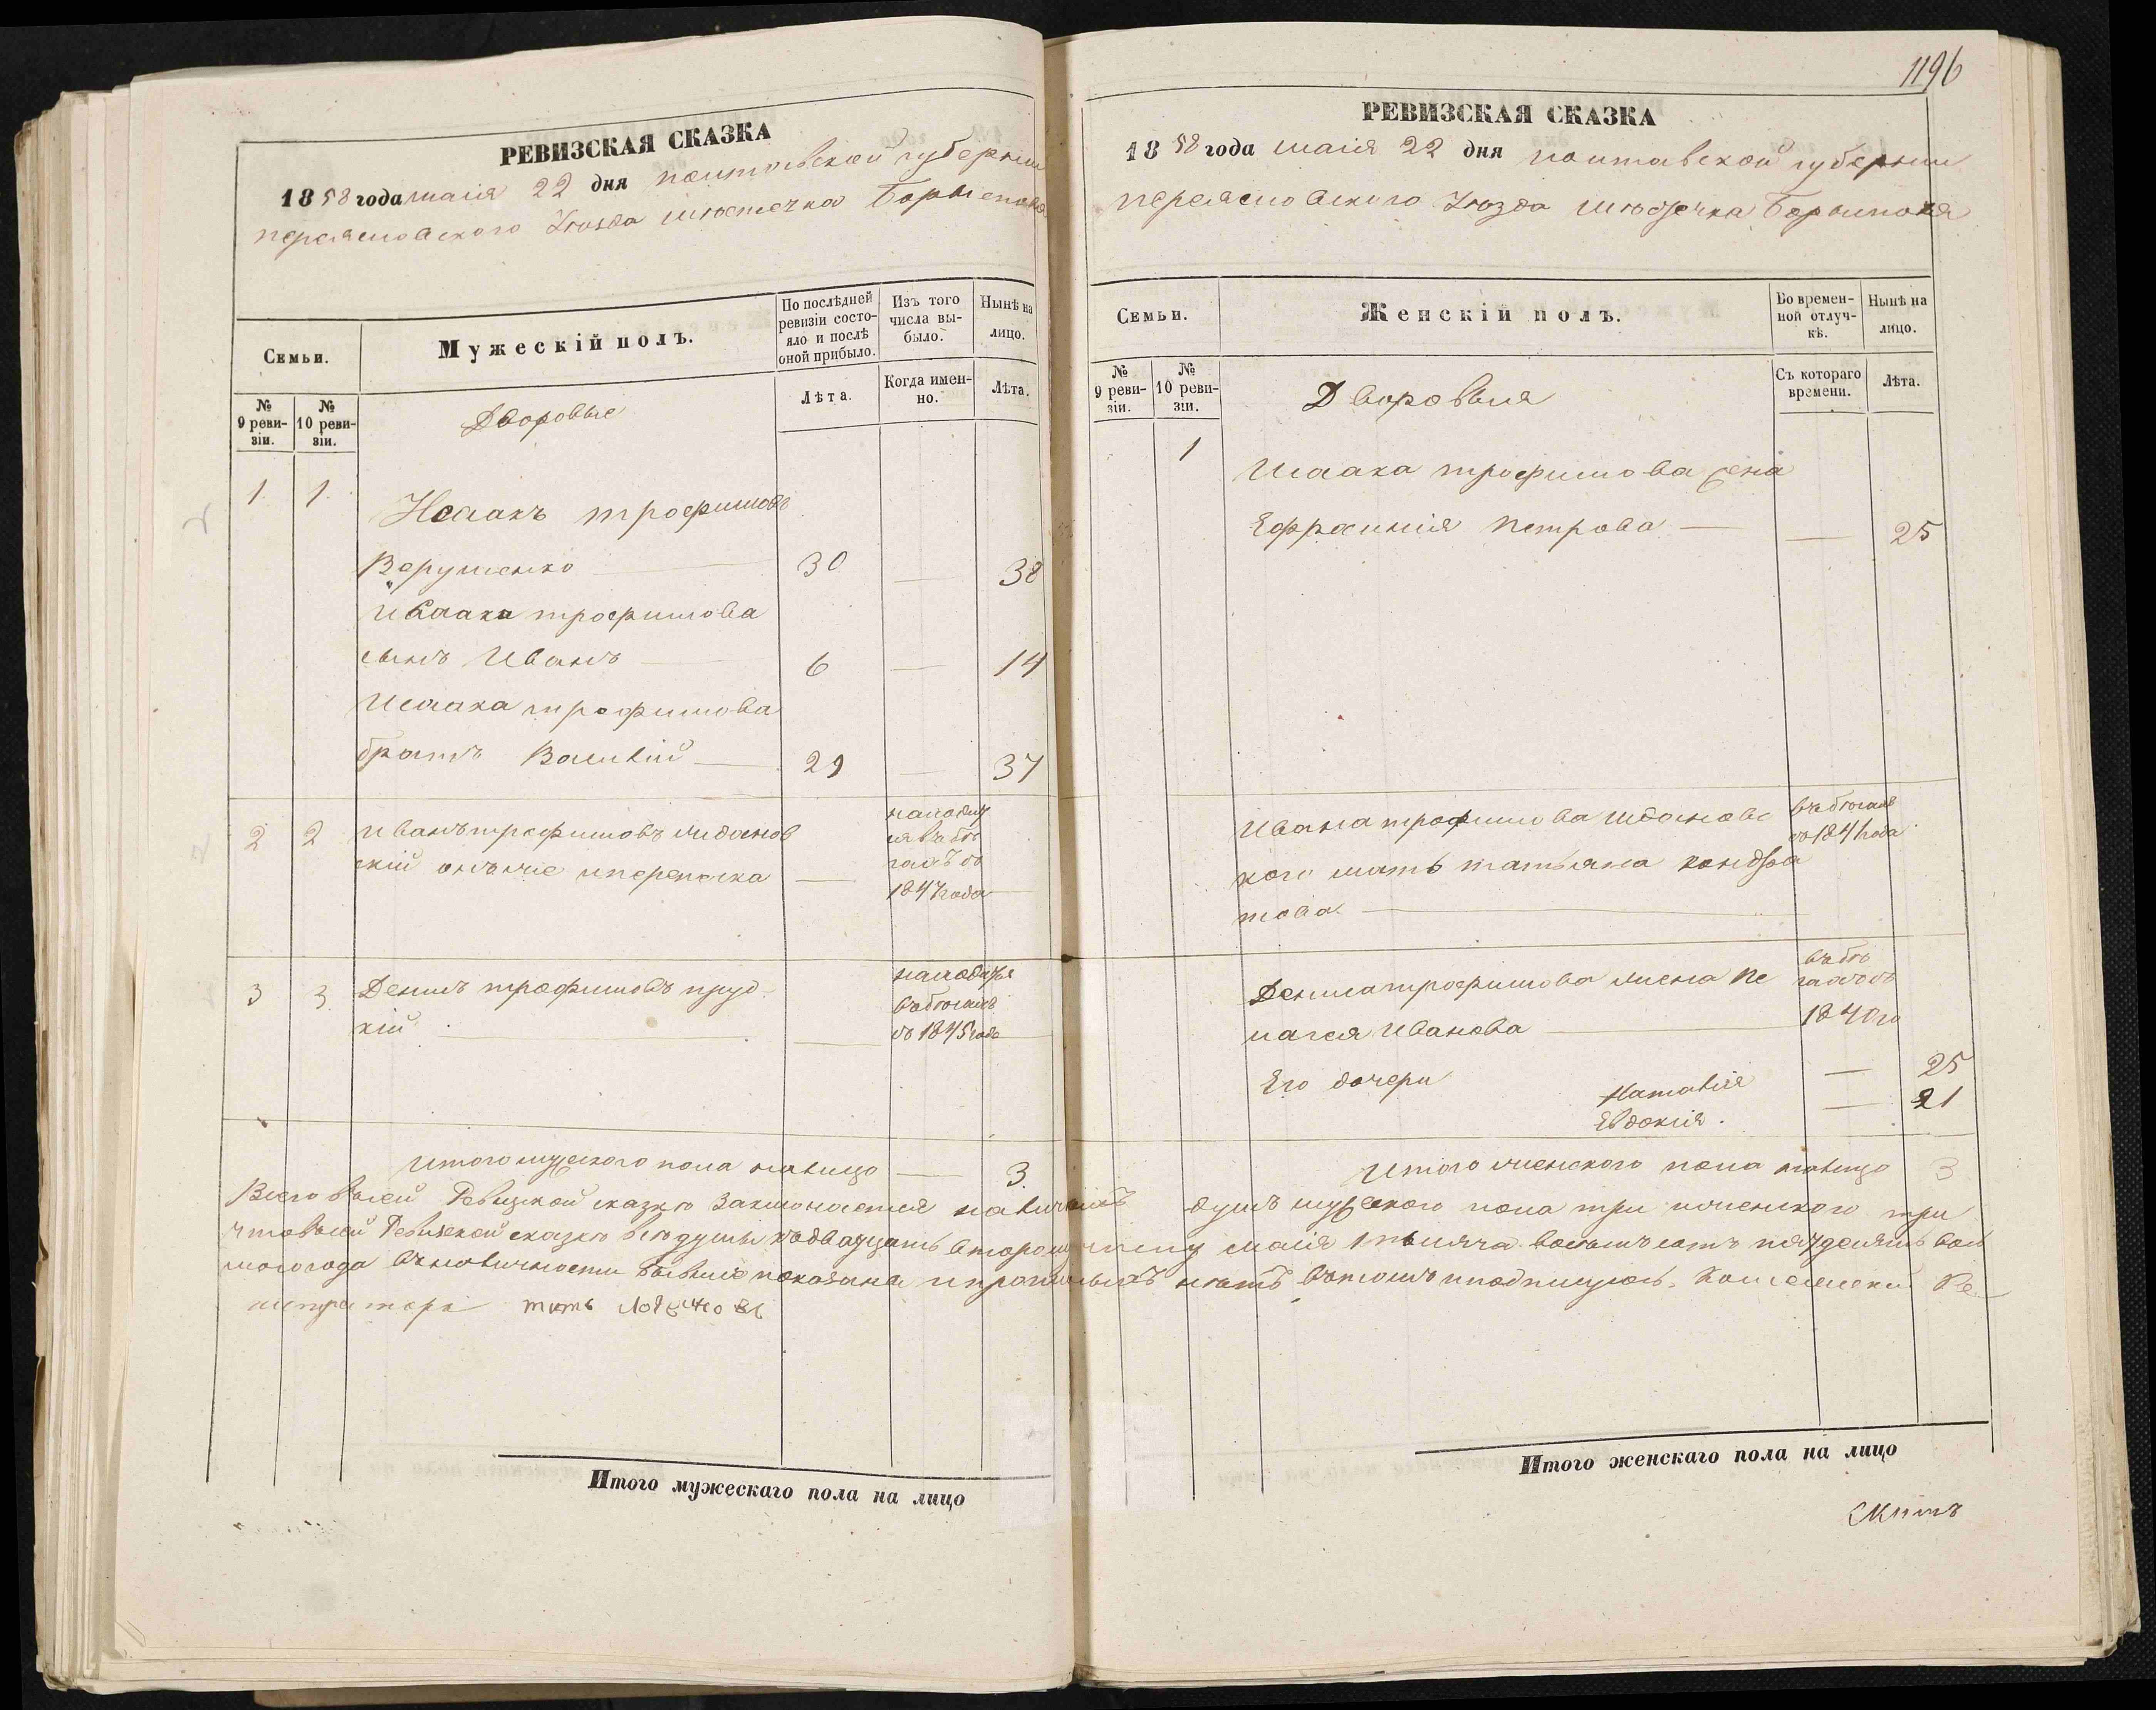 РЕВИЗСКАЯ СКАЗКА
1858 года маія 22 дня полтавской губерніи
переяславского Уѣзда мѣстечка Борисполя
Семьи.
Мужескій полъ.
По послѣдней ревизіи состо-
яло и послѣ
оной прибыло.
Изъ того
числа вы-
было.
Нынѣ на
лицо.
№
9 реви-
зіи.
№
10 реви-
зіи.
Дворовые
Лѣта.
Когда имен-
но.
Лѣта.
1. 1. Исаакъ трофимовъ
30 — 38
Исаака трофимова
сынъ Иванъ — 6 — 14
Исаака трофимова
братъ Василій — 29 — 37
2 2 Иванъ трофимовъ
скій —
находит
ся въ бѣ
гахъ съ
1847 года
3 3. Денисъ трофимовъ
кій —
находится
въ бѣгахъ
съ 1845 года
Итого мужского пола налицо — 3.
Итого мужескаго пола на лицо
1196
РЕВИЗСКАЯ СКАЗКА
1858 года маія 22 дня полтавской губерніи
переяславского Уѣзда мѣстечка Борисполя
Семьи.
Женскій полъ.
Во времен-
ной отлуч-
кѣ.
Нынѣ на
лицо.
№
9 реви-
зіи.
№
10 реви-
зіи.
Дворовыя
Съ котораго
времени.
Лѣта.
1 Исаака трофимова жена
Ефросинія Петрова — — 25
Ивана трофимова
кого мать татьяна кондра
това —
въ бѣгахъ
Дениса трофимова жена Пе
лагея Иванова —
въ бѣ
гахъ съ
Его дочери
Наталія — 25
Евдокія. — 21
Итого женского пола налицо 3
Всего въ сей Ревизской сказкѣ Заключается наличныхъ душъ мужского пола три и женского три
что въ сей Ревизской сказкѣ всѣ души къ двадцать второму числу маія 1 тысяча восемъ сотъ пятдесятъ вось
мого года въ наличности бывшіе показана и прописныхъ нѣтъ въ томъ и подпишусь. Колежский Ре
гистраторъ
Итого женскаго пола на лицо